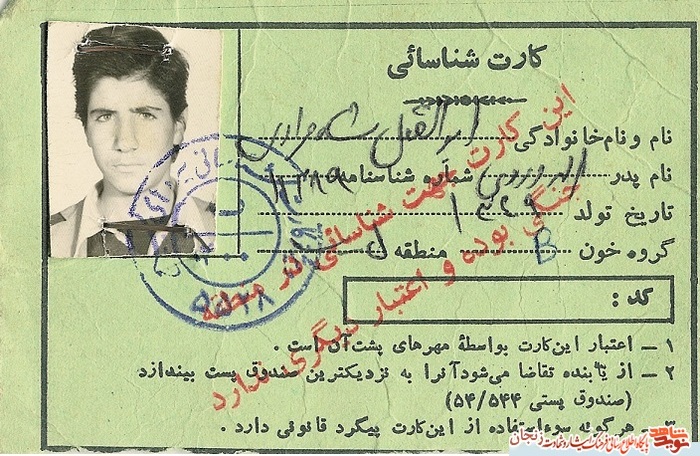 کارت شناسائی
نام و نام‌خانوادگی ابوالفضل
نام پدر الهوردی شماره شناسنامه ۱۳۸۹
تاریخ تولد ۱۳۴۹
گروه خون B منطقه
کد :
۱ – اعتبار این‌کارت بواسطهٔ مهرهای پشت‌آن است .
۲ – از یابنده تقاضا می‌شودآنرا به نزدیکترین صندوق پست بیندازد
(صندوق پستی ۵۴/۵۴۴)
۳ – هرگونه سوءاستفاده از این‌کارت پیگرد قانونی دارد .
این کارت جهت شناسائی در منطقه
جنگی بوده و اعتبار دیگری ندارد
نوید شاهد
پایگاه اطلاع رسانی فرهنگ ایثار و شهادت زنجان